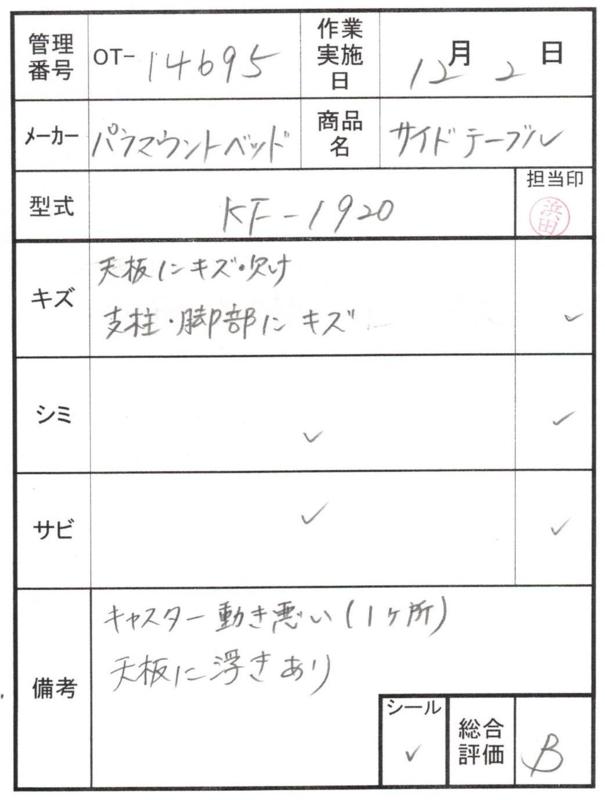 管理番号 OT-14695 作業実施日 12月2日
メーカー パラマウントベッド 商品名 サイドテーブル
型式 KF-1920 担当印 浜田
キズ 天板にキズ・欠け
支柱・脚部にキズ ✓
シミ ✓ ✓
サビ ✓ ✓
備考 キャスター動き悪い(1ヶ所)
天板に浮きあり
シール ✓ 総合評価 B